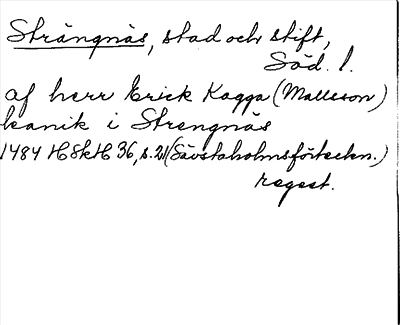 Strängnäs, stad och stift,
Söd. l.
af herr Erick Kagga (Mattsson)
kanik i Strengnäs
1484 HSkH 36, s. 21 (Sävstaholmsförteckn.)
regest.